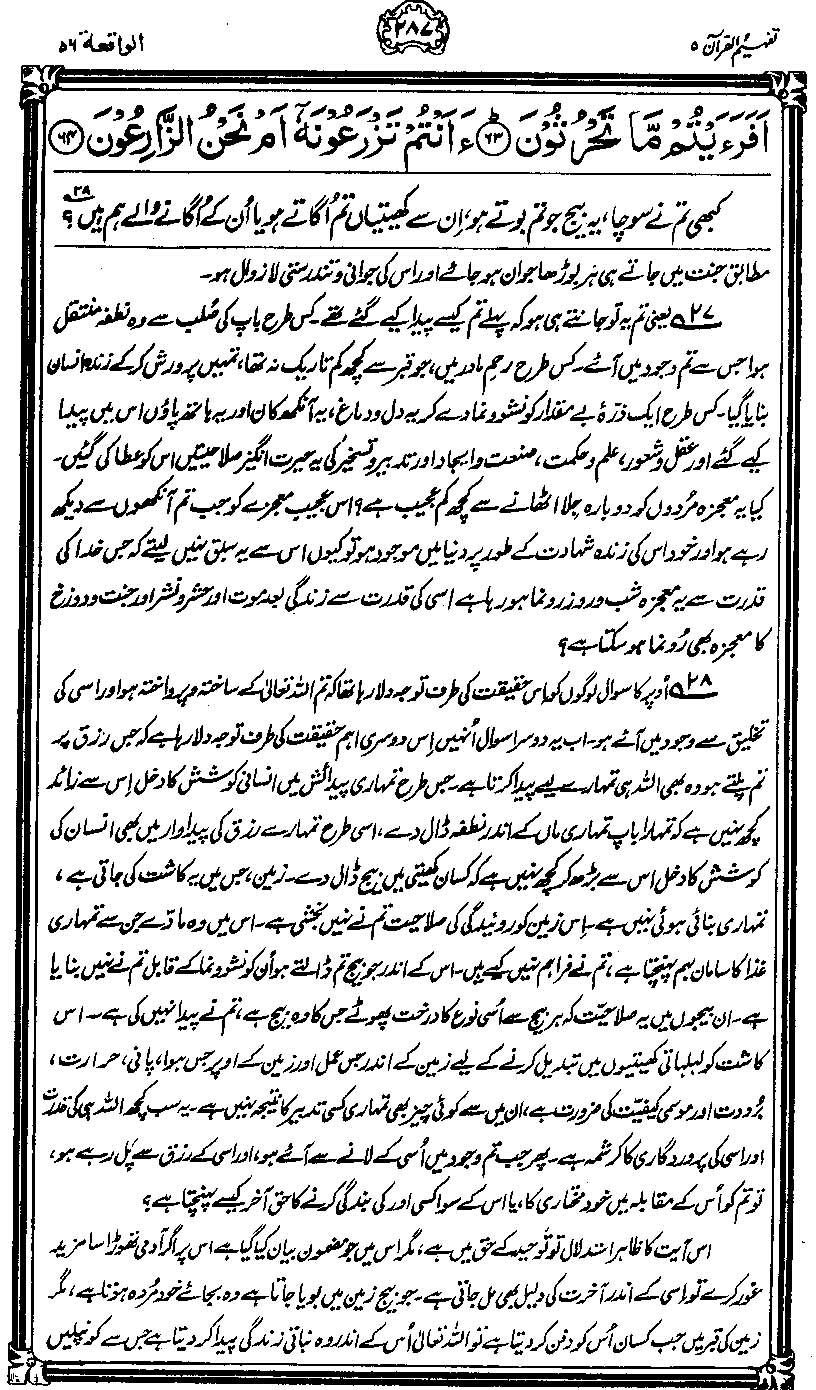 تفہیم القرآن ۵
۲۸۷
الواقعۃ ۵۶
اَفَرَءَيْتُمْ مَّا تَحْرُثُوْنَ ﴿۶۳﴾ ءَاَنْتُمْ تَزْرَعُوْنَهٗۤ اَمْ نَحْنُ الزَّارِعُوْنَ ﴿۶۴﴾
کبھی تم نے سوچا، یہ بیج جو تم بوتے ہو، اِن سے کھیتیاں تم اُگاتے ہو یا اُن کے اُگانے والے ہم ہیں ۲۸؟
مطابق جنت میں جاتے ہی ہر بوڑھا جوان ہو جائے اور اس کی جوانی و تندرستی لازوال ہو۔
۲۷ یعنی تم یہ تو جانتے ہی ہو کہ پہلے تم کیسے پیدا کیے گئے تھے۔ کس طرح باپ کی صُلب سے وہ نطفہ منتقل
ہوا جس سے تم وجود میں آئے۔ کس طرح رحمِ مادر میں، جو قبر سے کچھ کم تاریک نہ تھا، تمہیں پرورش کر کے زندہ انسان
بنایا گیا۔ کس طرح ایک ذرۂ بے مقدار کو نشوونما دے کر یہ دل و دماغ، یہ آنکھ کان اور یہ ہاتھ پاؤں اس میں پیدا
کیے گئے اور عقل و شعور، علم و حکمت، صنعت و ایجاد اور تدبیر و تسخیر کی یہ حیرت انگیز صلاحیتیں اس کو عطا کی گئیں۔
کیا یہ معجزہ مُردوں کو دوبارہ جِلا اٹھانے سے کچھ کم عجیب ہے؟ اس عجیب معجزے کو جب تم آنکھوں سے دیکھ
رہے ہو اور خود اس کی زندہ شہادت کے طور پر دنیا میں موجود ہو تو کیوں اس سے یہ سبق نہیں لیتے کہ جس خدا کی
قدرت سے یہ معجزہ شب و روز رونما ہو رہا ہے اسی کی قدرت سے زندگی بعد موت اور حشر و نشر اور جنت و دوزخ
کا معجزہ بھی رُونما ہو سکتا ہے؟
۲۸ اُوپر کا سوال لوگوں کو اس حقیقت کی طرف توجہ دلا رہا تھا کہ تم اللہ تعالیٰ کے ساختہ و پرواختہ ہو اور اسی کی
تخلیق سے وجود میں آئے ہو۔ اب یہ دوسرا سوال اُنہیں اِس دوسری اہم حقیقت کی طرف توجہ دلا رہا ہے کہ جس رزق پر
تم پلتے ہو وہ بھی اللہ ہی تمہارے لیے پیدا کرتا ہے۔ جس طرح تمہاری پیدائش میں انسانی کوشش کا دخل اِس سے زائد
کچھ نہیں ہے کہ تمہارا باپ تمہاری ماں کے اندر نطفہ ڈال دے، اسی طرح تمہارے رزق کی پیداوار میں بھی انسان کی
کوشش کا دخل اس سے بڑھ کر کچھ نہیں ہے کہ کسان کھیتی میں بیج ڈال دے۔ زمین، جس میں یہ کاشت کی جاتی ہے،
تمہاری بنائی ہوئی نہیں ہے۔ اِس زمین کو روئیدگی کی صلاحیت تم نے نہیں بخشی ہے۔ اس میں وہ مادّے جن سے تمہاری
غذا کا سامان بہم پہنچتا ہے، تم نے فراہم نہیں کیے ہیں۔ اس کے اندر جو بیج تم ڈالتے ہو اُن کو نشوونما کے قابل تم نے نہیں بنایا
ہے۔ ان بیجوں میں یہ صلاحیّت کہ ہر بیج سے اُسی نوع کا درخت پھوٹے جس کا وہ بیج ہے، تم نے پیدا نہیں کی ہے۔ اس
کاشت کو لہلہاتی کھیتیوں میں تبدیل کرنے کے لیے زمین کے اندر جس عمل اور زمین کے اوپر جس ہوا، پانی، حرارت،
بُرودت اور موسمی کیفیت کی ضرورت ہے، ان میں سے کوئی چیز بھی تمہاری کسی تدبیر کا نتیجہ نہیں ہے۔ یہ سب کچھ اللہ ہی کی قدرت
اور اسی کی پروردگاری کا کرشمہ ہے۔ پھر جب تم وجود میں اُسی کے لانے سے آئے ہو، اور اسی کے رزق سے پَل رہے ہو،
تو تم کو اُس کے مقابلہ میں خود مختاری کا، یا اس کے سوا کسی اور کی بندگی کرنے کا حق آخر کیسے پہنچتا ہے؟
اس آیت کا ظاہر استدلال تو توحید کے حق میں ہے، مگر اس میں جو مضمون بیان کیا گیا ہے اس پر اگر آدمی تھوڑا سا مزید
غور کرے تو اسی کے اندر آخرت کی دلیل بھی مل جاتی ہے۔ جو بیج زمین میں بویا جاتا ہے وہ بجائے خود مُردہ ہوتا ہے، مگر
زمین کی قبر میں جب کسان اُس کو دفن کر دیتا ہے تو اللہ تعالیٰ اُس کے اندر وہ نباتی زندگی پیدا کر دیتا ہے جس سے کونپلیں